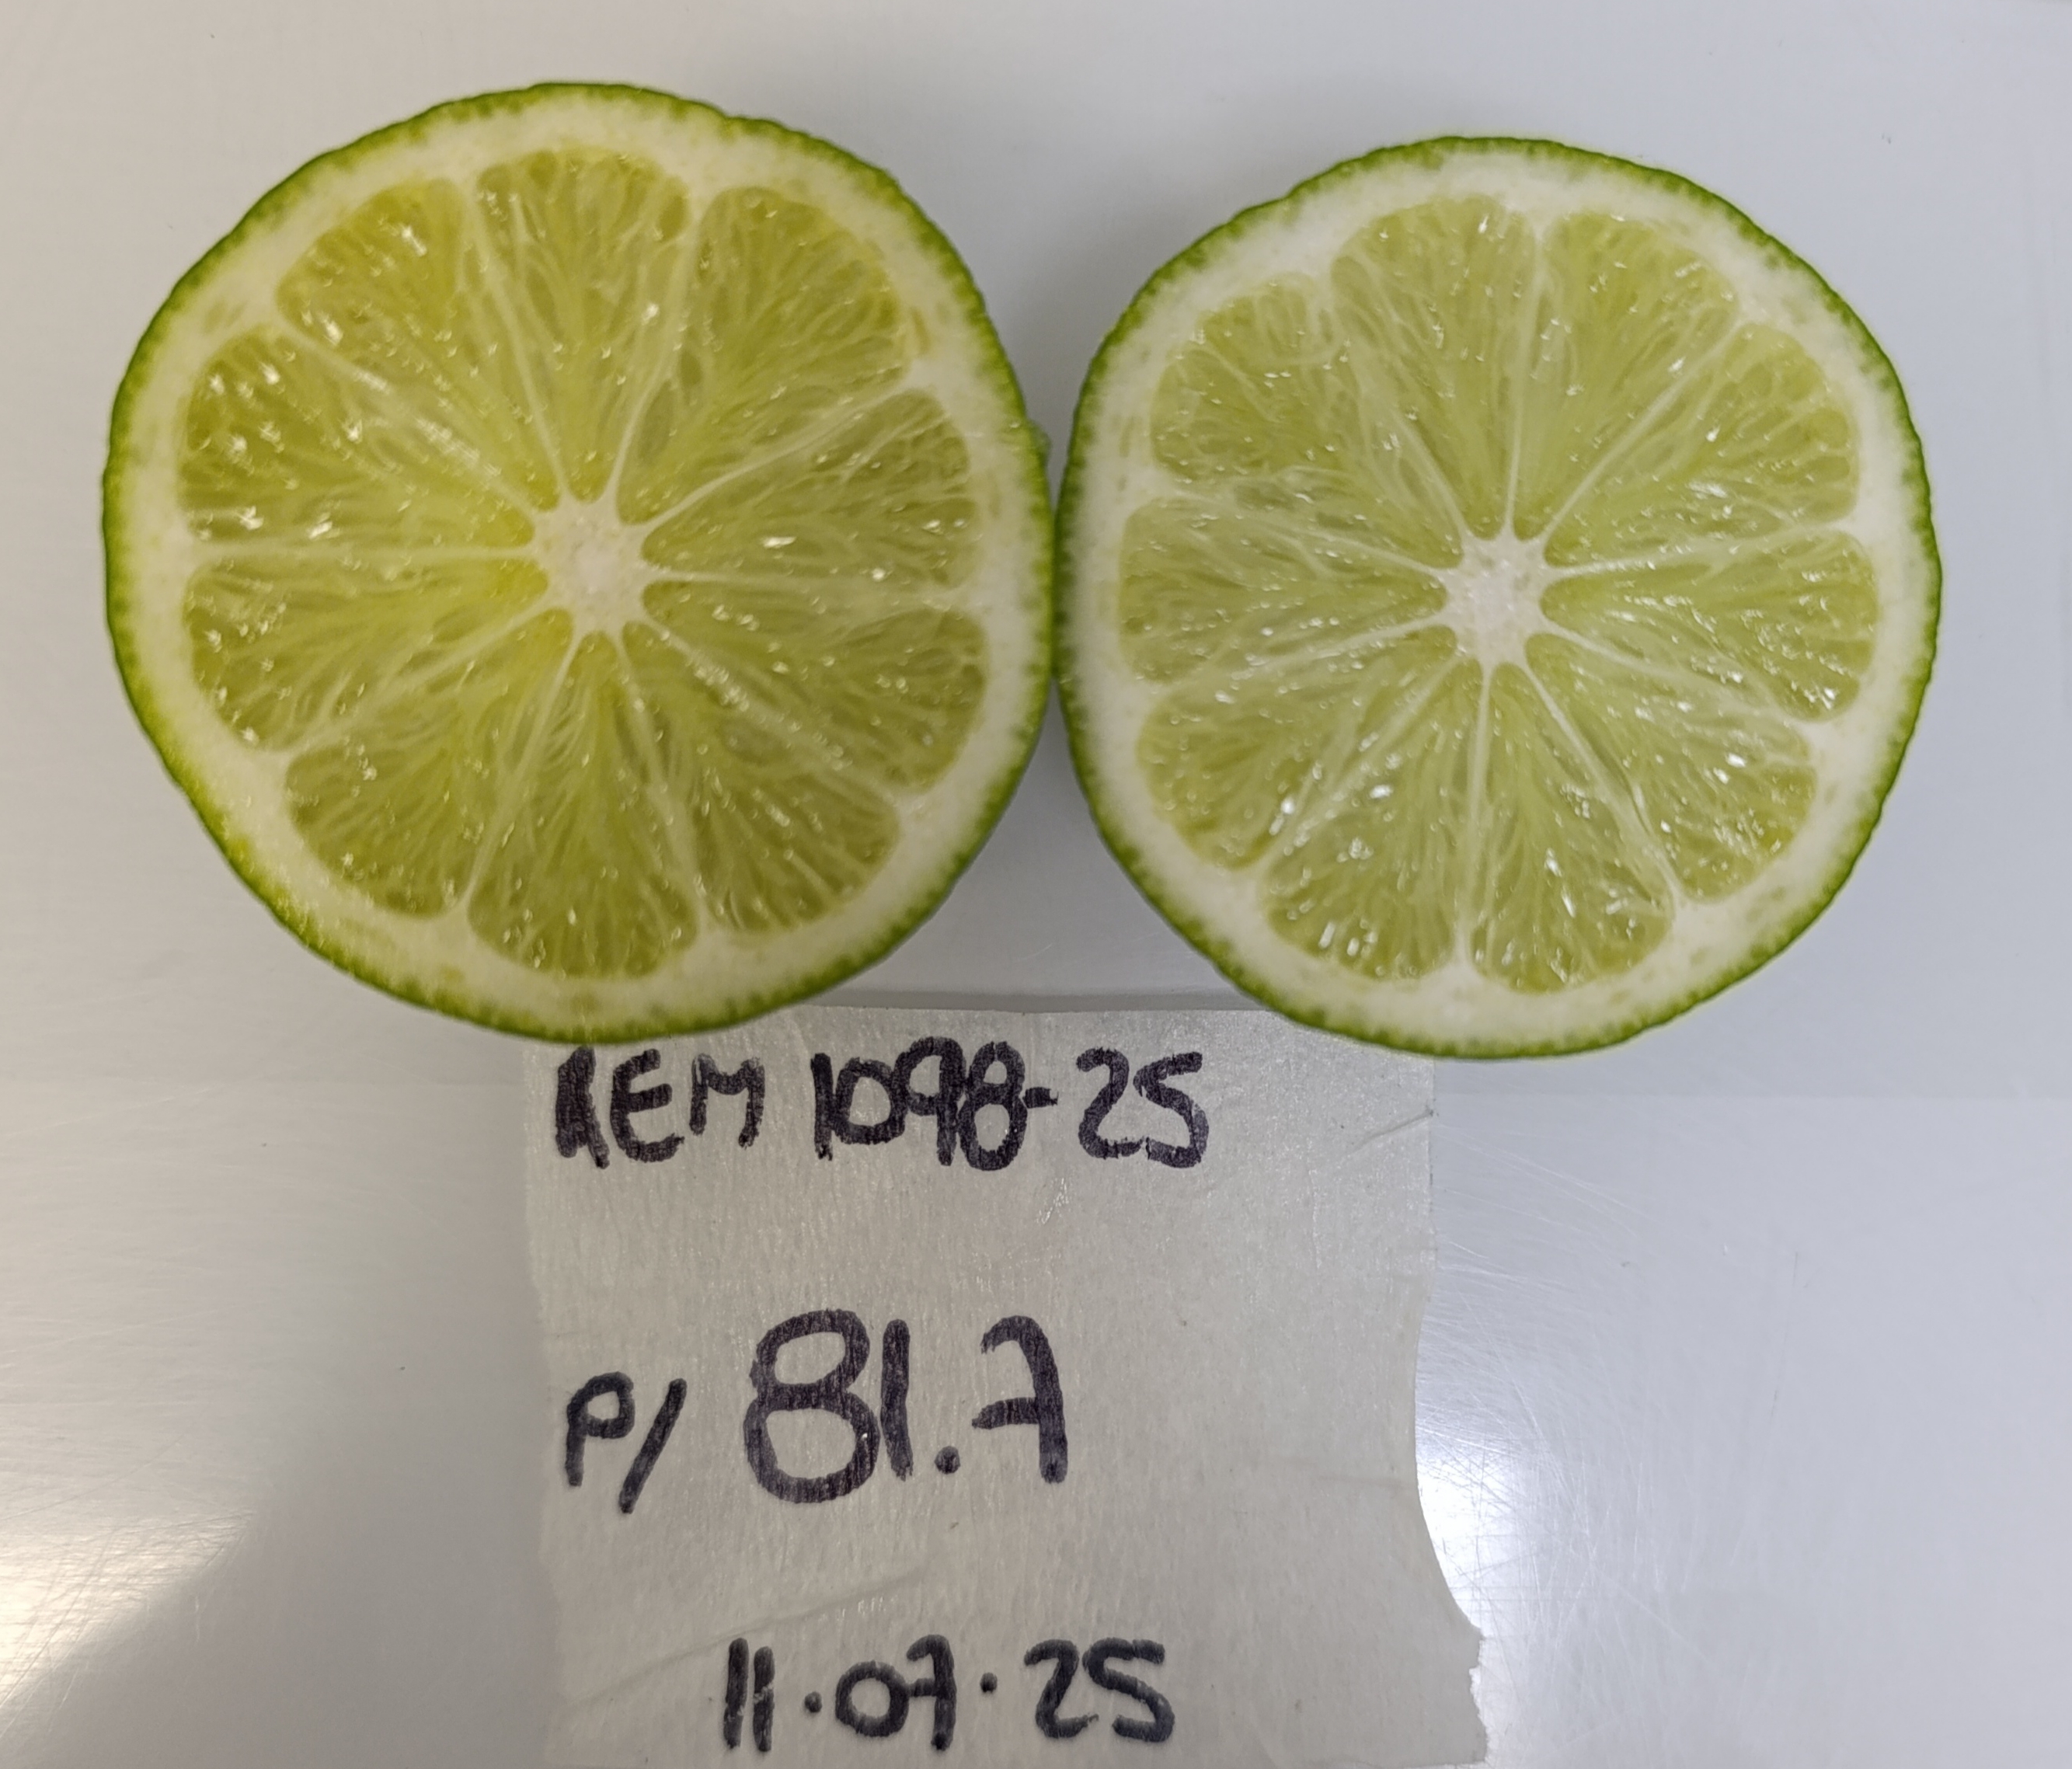 REM 1098-25
P/ 81.7
11.07.25